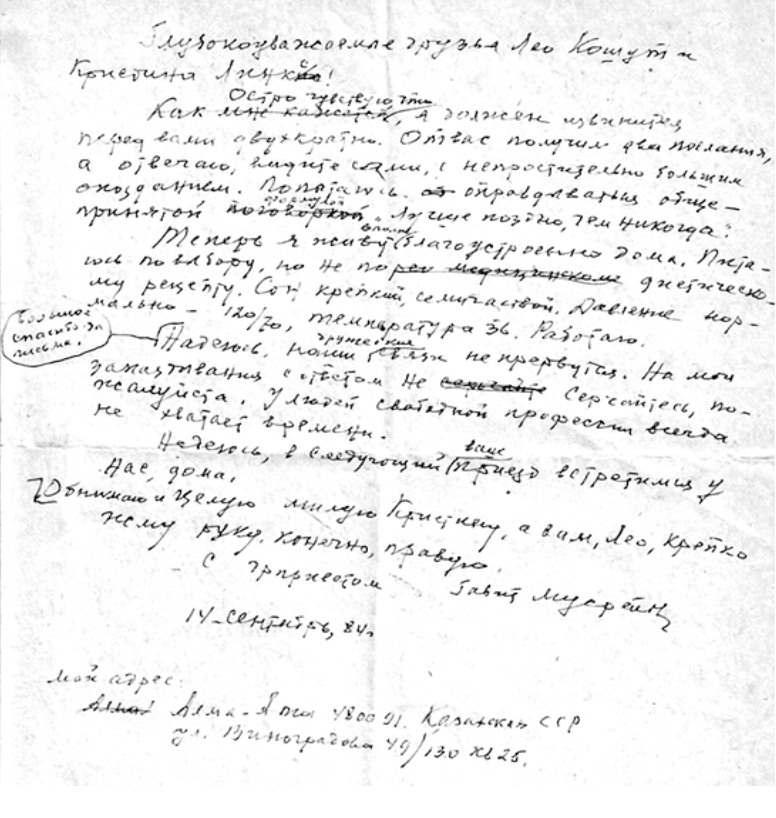 Глубокоуважаемые друзья Лео Кошут и
Кристина Линк!
Остро чувствую, что
Как мне кажется, я должен извинится
перед вами двухкратно. От вас получил два послания,
а отвечаю, видите сами, с непростительно большим
опозданием. Попытаюсь оправдаваться обще-
принятой поговоркой „Лучше поздно, чем никогда".
вполне
Теперь я живу благоустроенно дома. Пита-
юсь по выбору, но не по медицинскому диетическо-
му рецепту. Сон крепкий, семичасовой. Давление нор-
мально – 120/70, температура 36. Работаю.
Большое
спасибо за
письма.
дружеские
Надеюсь, наши связи не прервутся. На мои
запаздывания с ответом не сердчайтесь, по-
жалуйста. У людей свободной професии всегда
не хватает времени.
ваш
Надеюсь, в следующий приезд встретимся у
нас, дома.
Обнимаю и целую милую Кристину, а вам, Лео, крепко
жму руку, конечно, правую.
С приветом Габит Мусрепов
14 сентябрь, 84г.
мой адрес:
Алма Алма-Ата 480091. Казахская ССР
ул. Виноградова 49/130 кв 25.